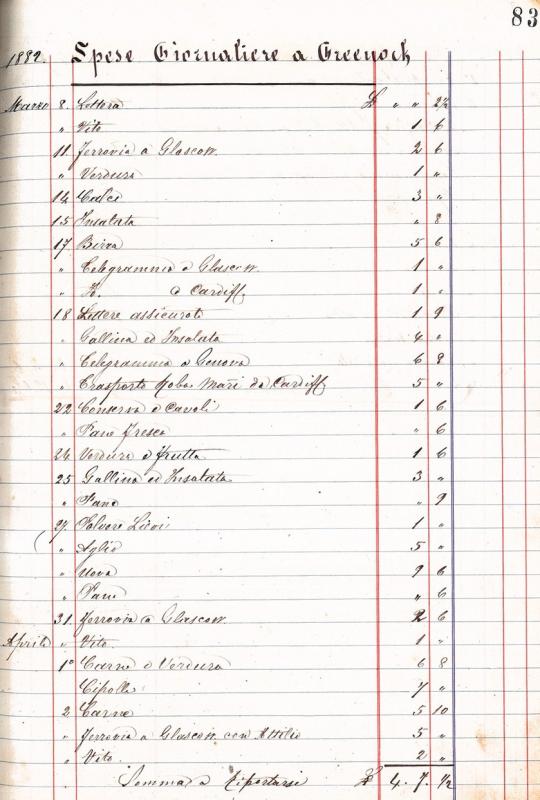 83
1882. Spese Giornaliere a Greenock
Marzo 8. Lettera £ " " 2½
" Vito 1 6
11 Ferrovia a Glascow. 2 6
" Verdura 1 "
14 3 "
15 Insalata " 8
17 Birra 5 6
" Telegramma a Glascow. 1 "
" a Cardiff, 1 "
18 Lettere assicurate 1 9
" Gallina ed Insalata 4 "
" Telegramma a Genova 6 8
" Trasporto Roba da Cardiff 5 "
22 Conserva e Cavoli 1 6
" Pane fresco " 6
24 Verdura e frutta 1 6
25 Gallina ed Insalata 3 "
" Pane " 9
27. Polvere 1 "
" Aglio 5 "
" Uova 9 6
" Pane " 6
31. Ferrovia a Glascow. 2 6
Aprile " Vito. 1 "
1° Carne e Verdura 6 8
Cipolle 7 "
2 Carne 5 10
" Ferrovia a Glascow con Attilio 5 "
" Vito. 2 "
Somma a Riportarsi £ 4. 7. ½